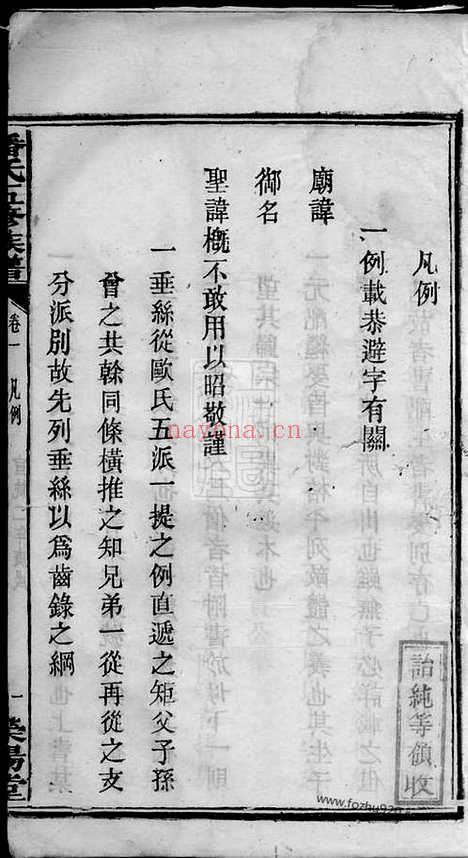 凡例
一例載恭避字有關
廟諱
御名
聖諱概不敢用以昭敬謹
一垂絲從歐氏五派一提之例直遞之知父子孫
曾之共榦同條橫推之知兄弟一從再從之支
分派別故先列垂絲以爲齒錄之綱
詒純等領收
潘氏五修族譜
卷一
凡例
一
榮陽堂
nayona.cn
www.fozhu920